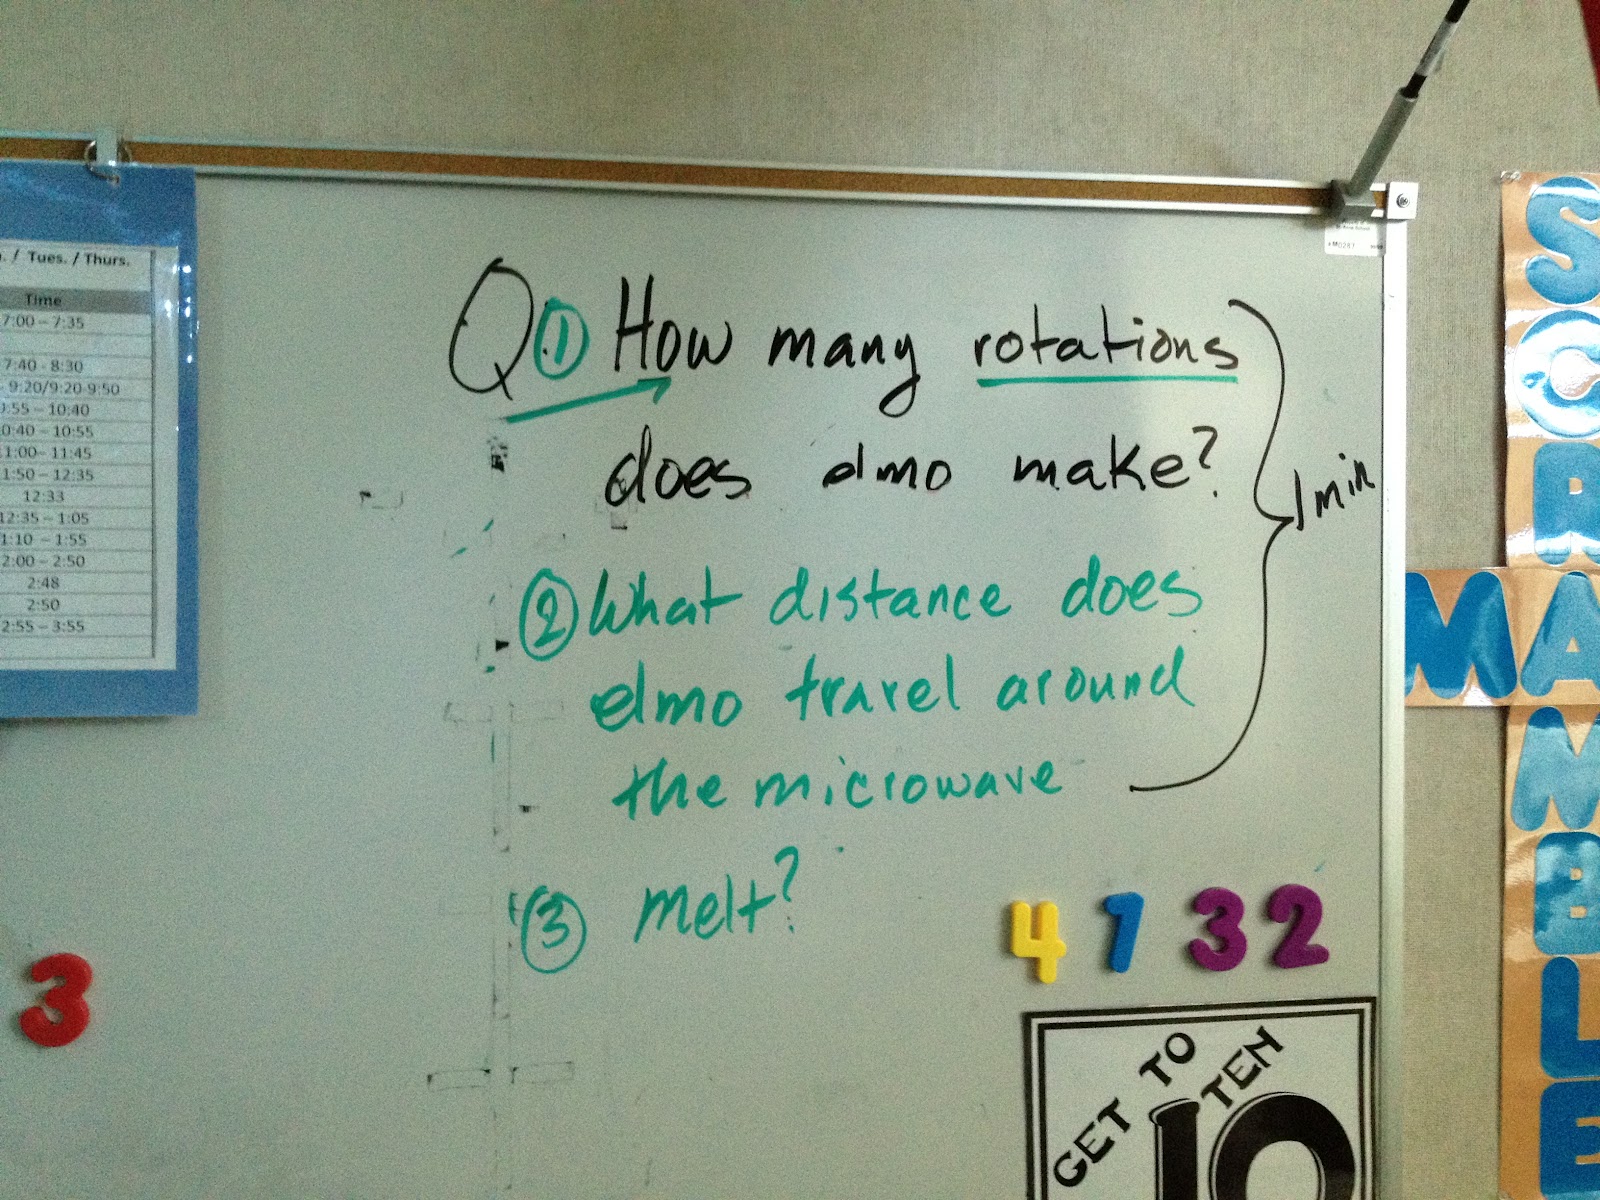 . / Tues. / Thurs.
Time
7:00 – 7:35
7:40 - 8:30
- 9:20/9:20-9:50
:55 – 10:40
0:40 – 10:55
1:00 – 11:45
1:50 – 12:35
12:33
12:35 – 1:05
1:10 – 1:55
2:00 – 2:50
2:48
2:50
2:55 – 3:55
Q ① How many rotations
does elmo make?
1 min
② What distance does
elmo travel around
the microwave
③ melt?
4 1 3 2
3
GET TO
TEN
10
SCRAMBLE
M